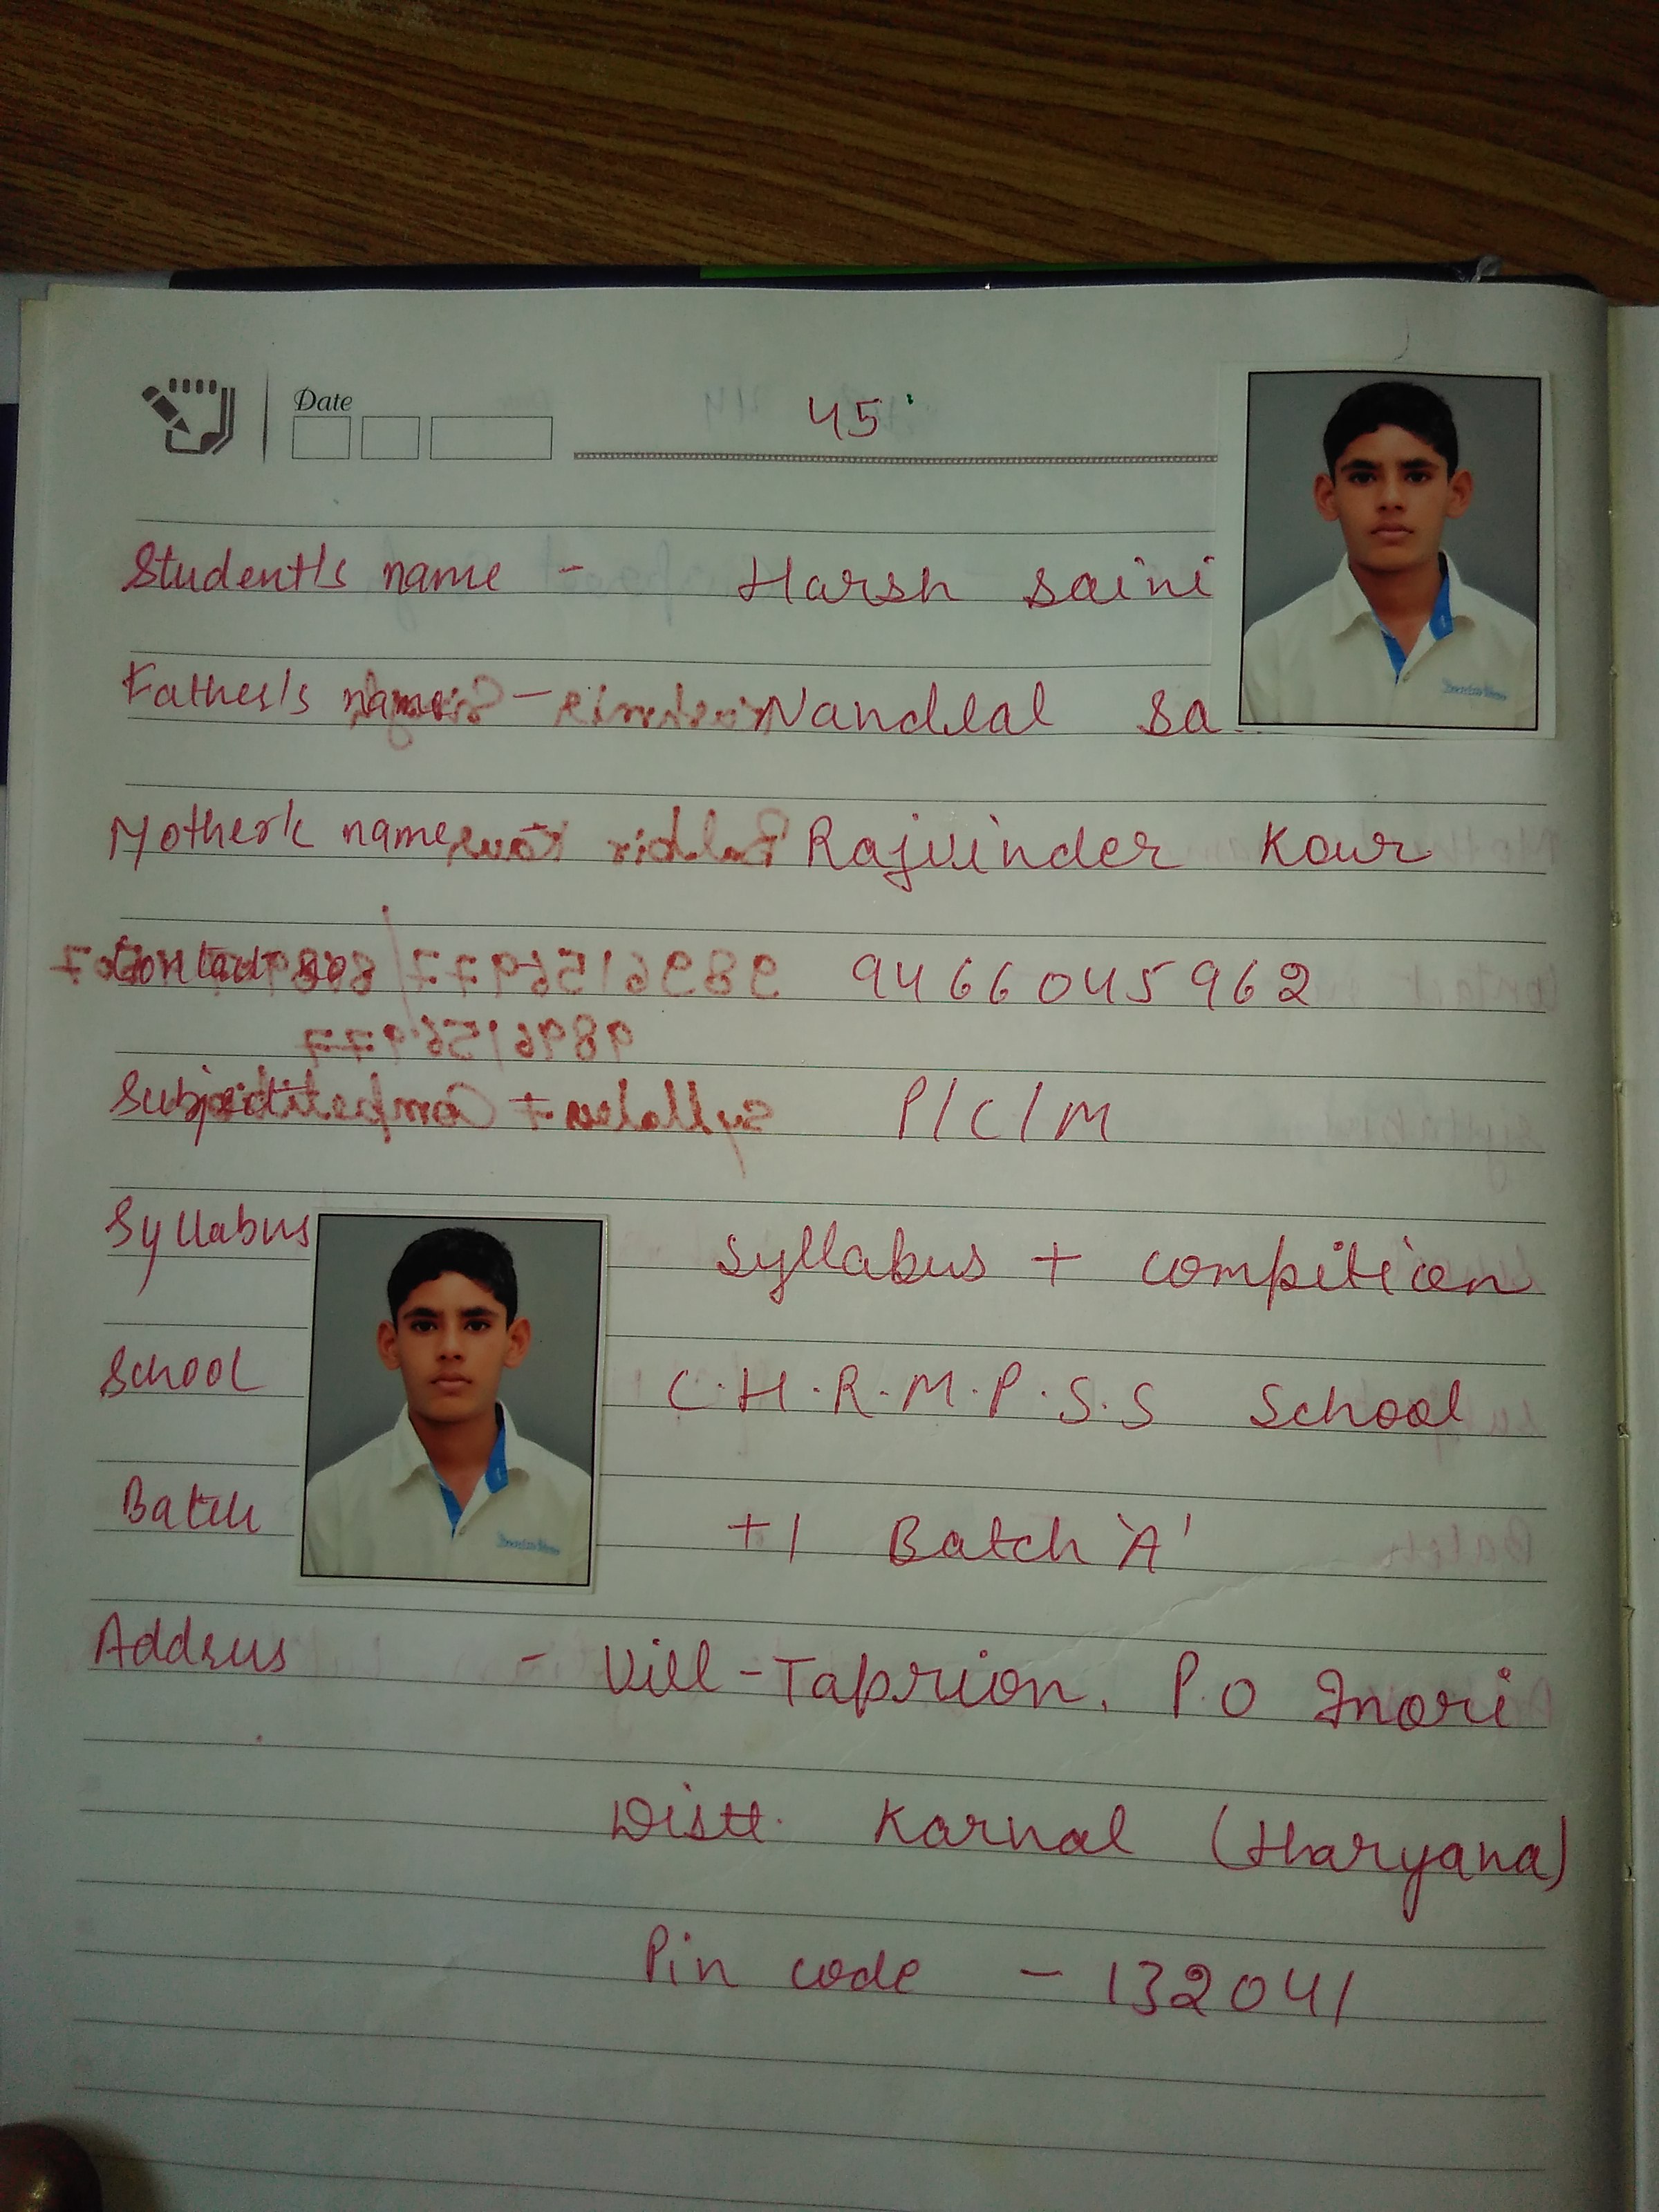 Date
45
Student's name - Harsh Saini
Father's name - Nandlal Sa
Mother's name Rajvinder Kour
Contact no 9466045962
Subject P/C/M
Syllabus syllabus + compition
School C.H.R.M.P.S.S School
Batch +1 Batch 'A'
Address - Vill-Taprion, P.O Inori
Distt. Karnal (Haryana)
Pin code - 132041